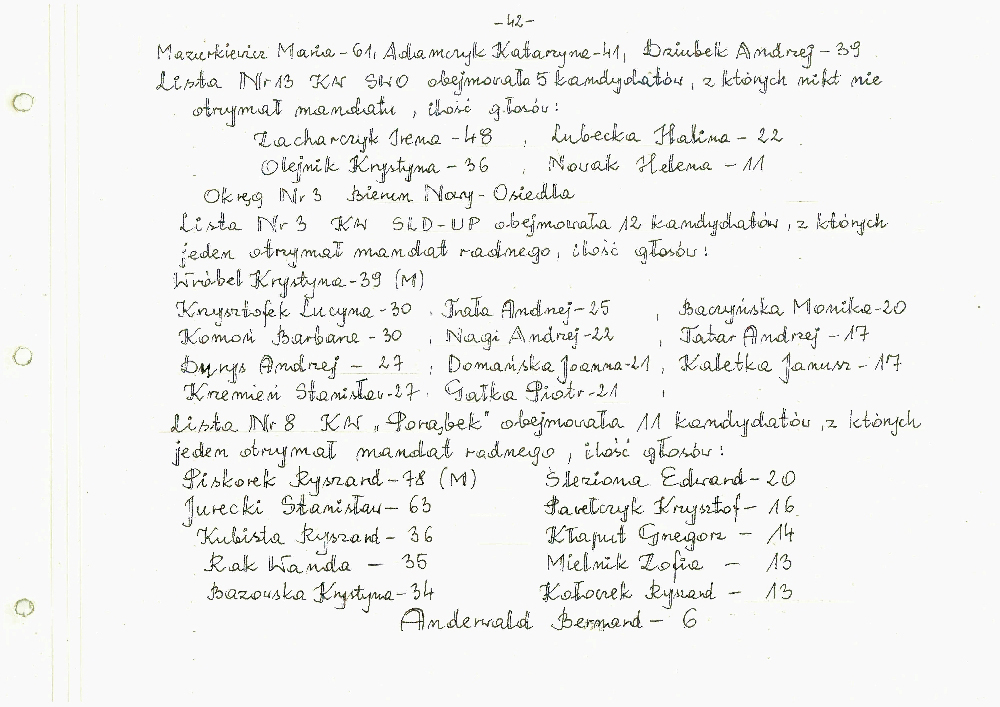 -42-
Mazurkiewicz Maria - 61, Adamczyk Katarzyna - 41, Dziubek Andrzej - 39
Lista Nr 13 KW SWO obejmowała 5 kandydatów, z których nikt nie
otrzymał mandatu, ilość głosów:
Zacharczyk Irena - 48 , Lubecka Halina - 22
Olejnik Krystyna - 36 , Novak Helena - 11
Okręg Nr 3 Bieruń Nowy - Osiedla
Lista Nr 3 KW SLD-UP obejmowała 12 kandydatów, z których
jeden otrzymał mandat radnego, ilość głosów:
Wróbel Krystyna - 39 (M)
Krzysztofek Lucyna - 30 , Trała Andrzej - 25 , Baczyńska Monika - 20
Komoń Barbara - 30 , Nagi Andrzej - 22 , Tatar Andrzej - 17
Dyrys Andrzej - 27 , Domańska Joanna - 21 , Kaletka Janusz - 17
Krzemień Stanisław - 27 , Gałka Piotr - 21 ,
Lista Nr 8 KW „Porąbek" obejmowała 11 kandydatów, z których
jeden otrzymał mandat radnego, ilość głosów:
Piskorek Ryszard - 78 (M) Śleziona Edward - 20
Jurecki Stanisław - 63 Pawełczyk Krzysztof - 16
Kubista Ryszard - 36 Kłaput Grzegorz - 14
Rak Wanda - 35 Mielnik Zofia - 13
Bazowska Krystyna - 34 Kołoczek Ryszard - 13
Anderwald Bernard - 6